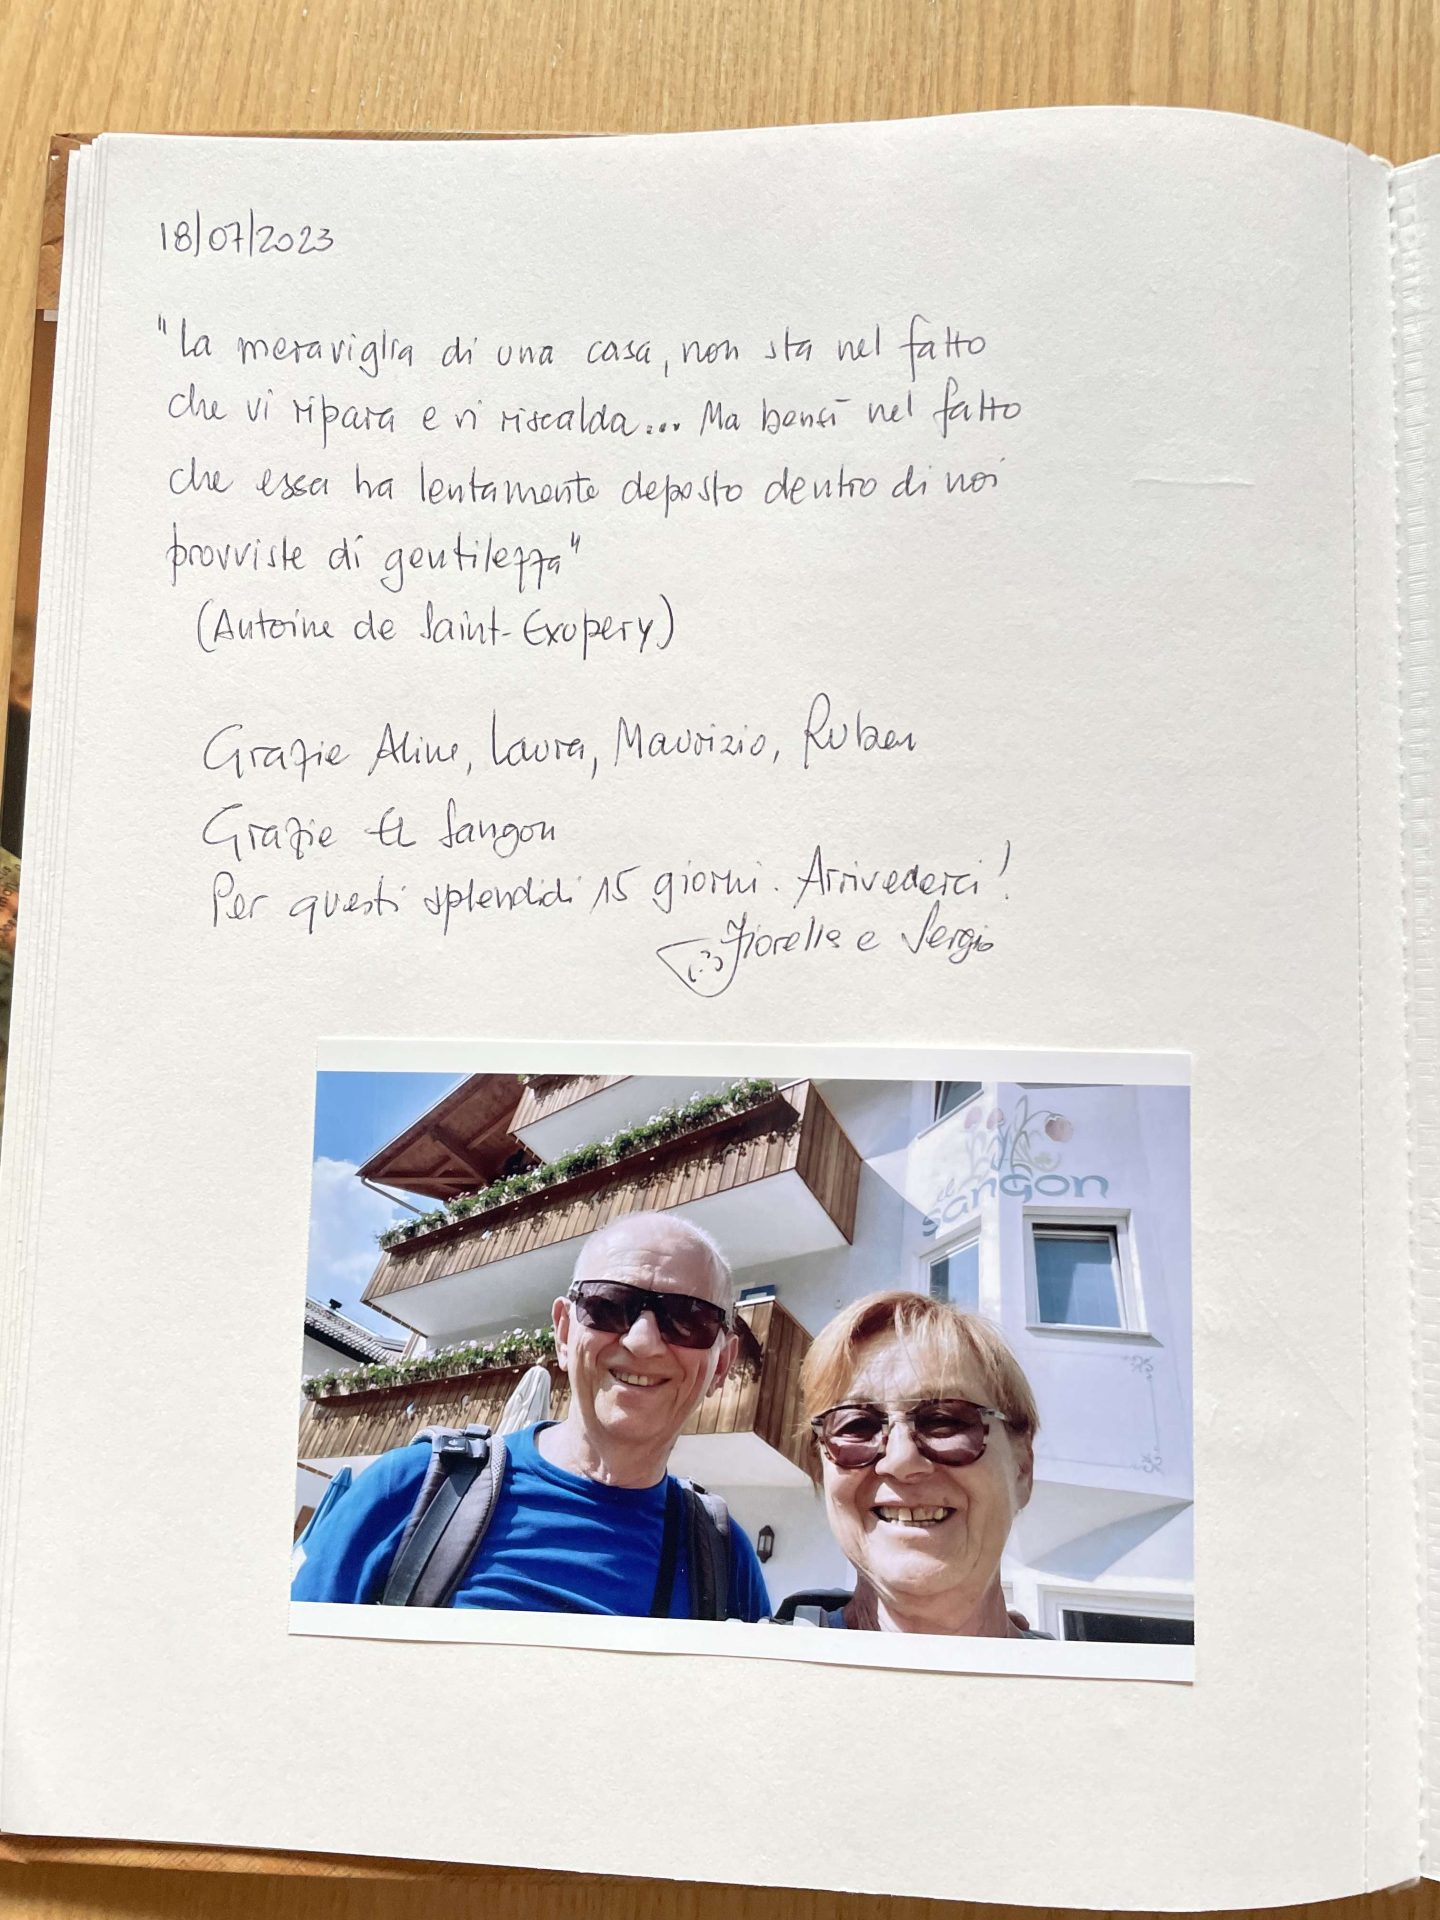 18/07/2023
"La meraviglia di una casa, non sta nel fatto
che vi ripara e vi riscalda... Ma bensì nel fatto
che essa ha lentamente deposto dentro di noi
provviste di gentilezza"
(Antoine de Saint-Exupery)
Grazie Aline, Laura, Maurizio, Ruben
Grazie El Sangon
Per questi splendidi 15 giorni. Arrivederci!
Fiorella e Sergio
el
sangon